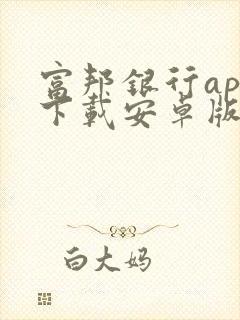 富邦銀行ap
下載安卓版
白大妈